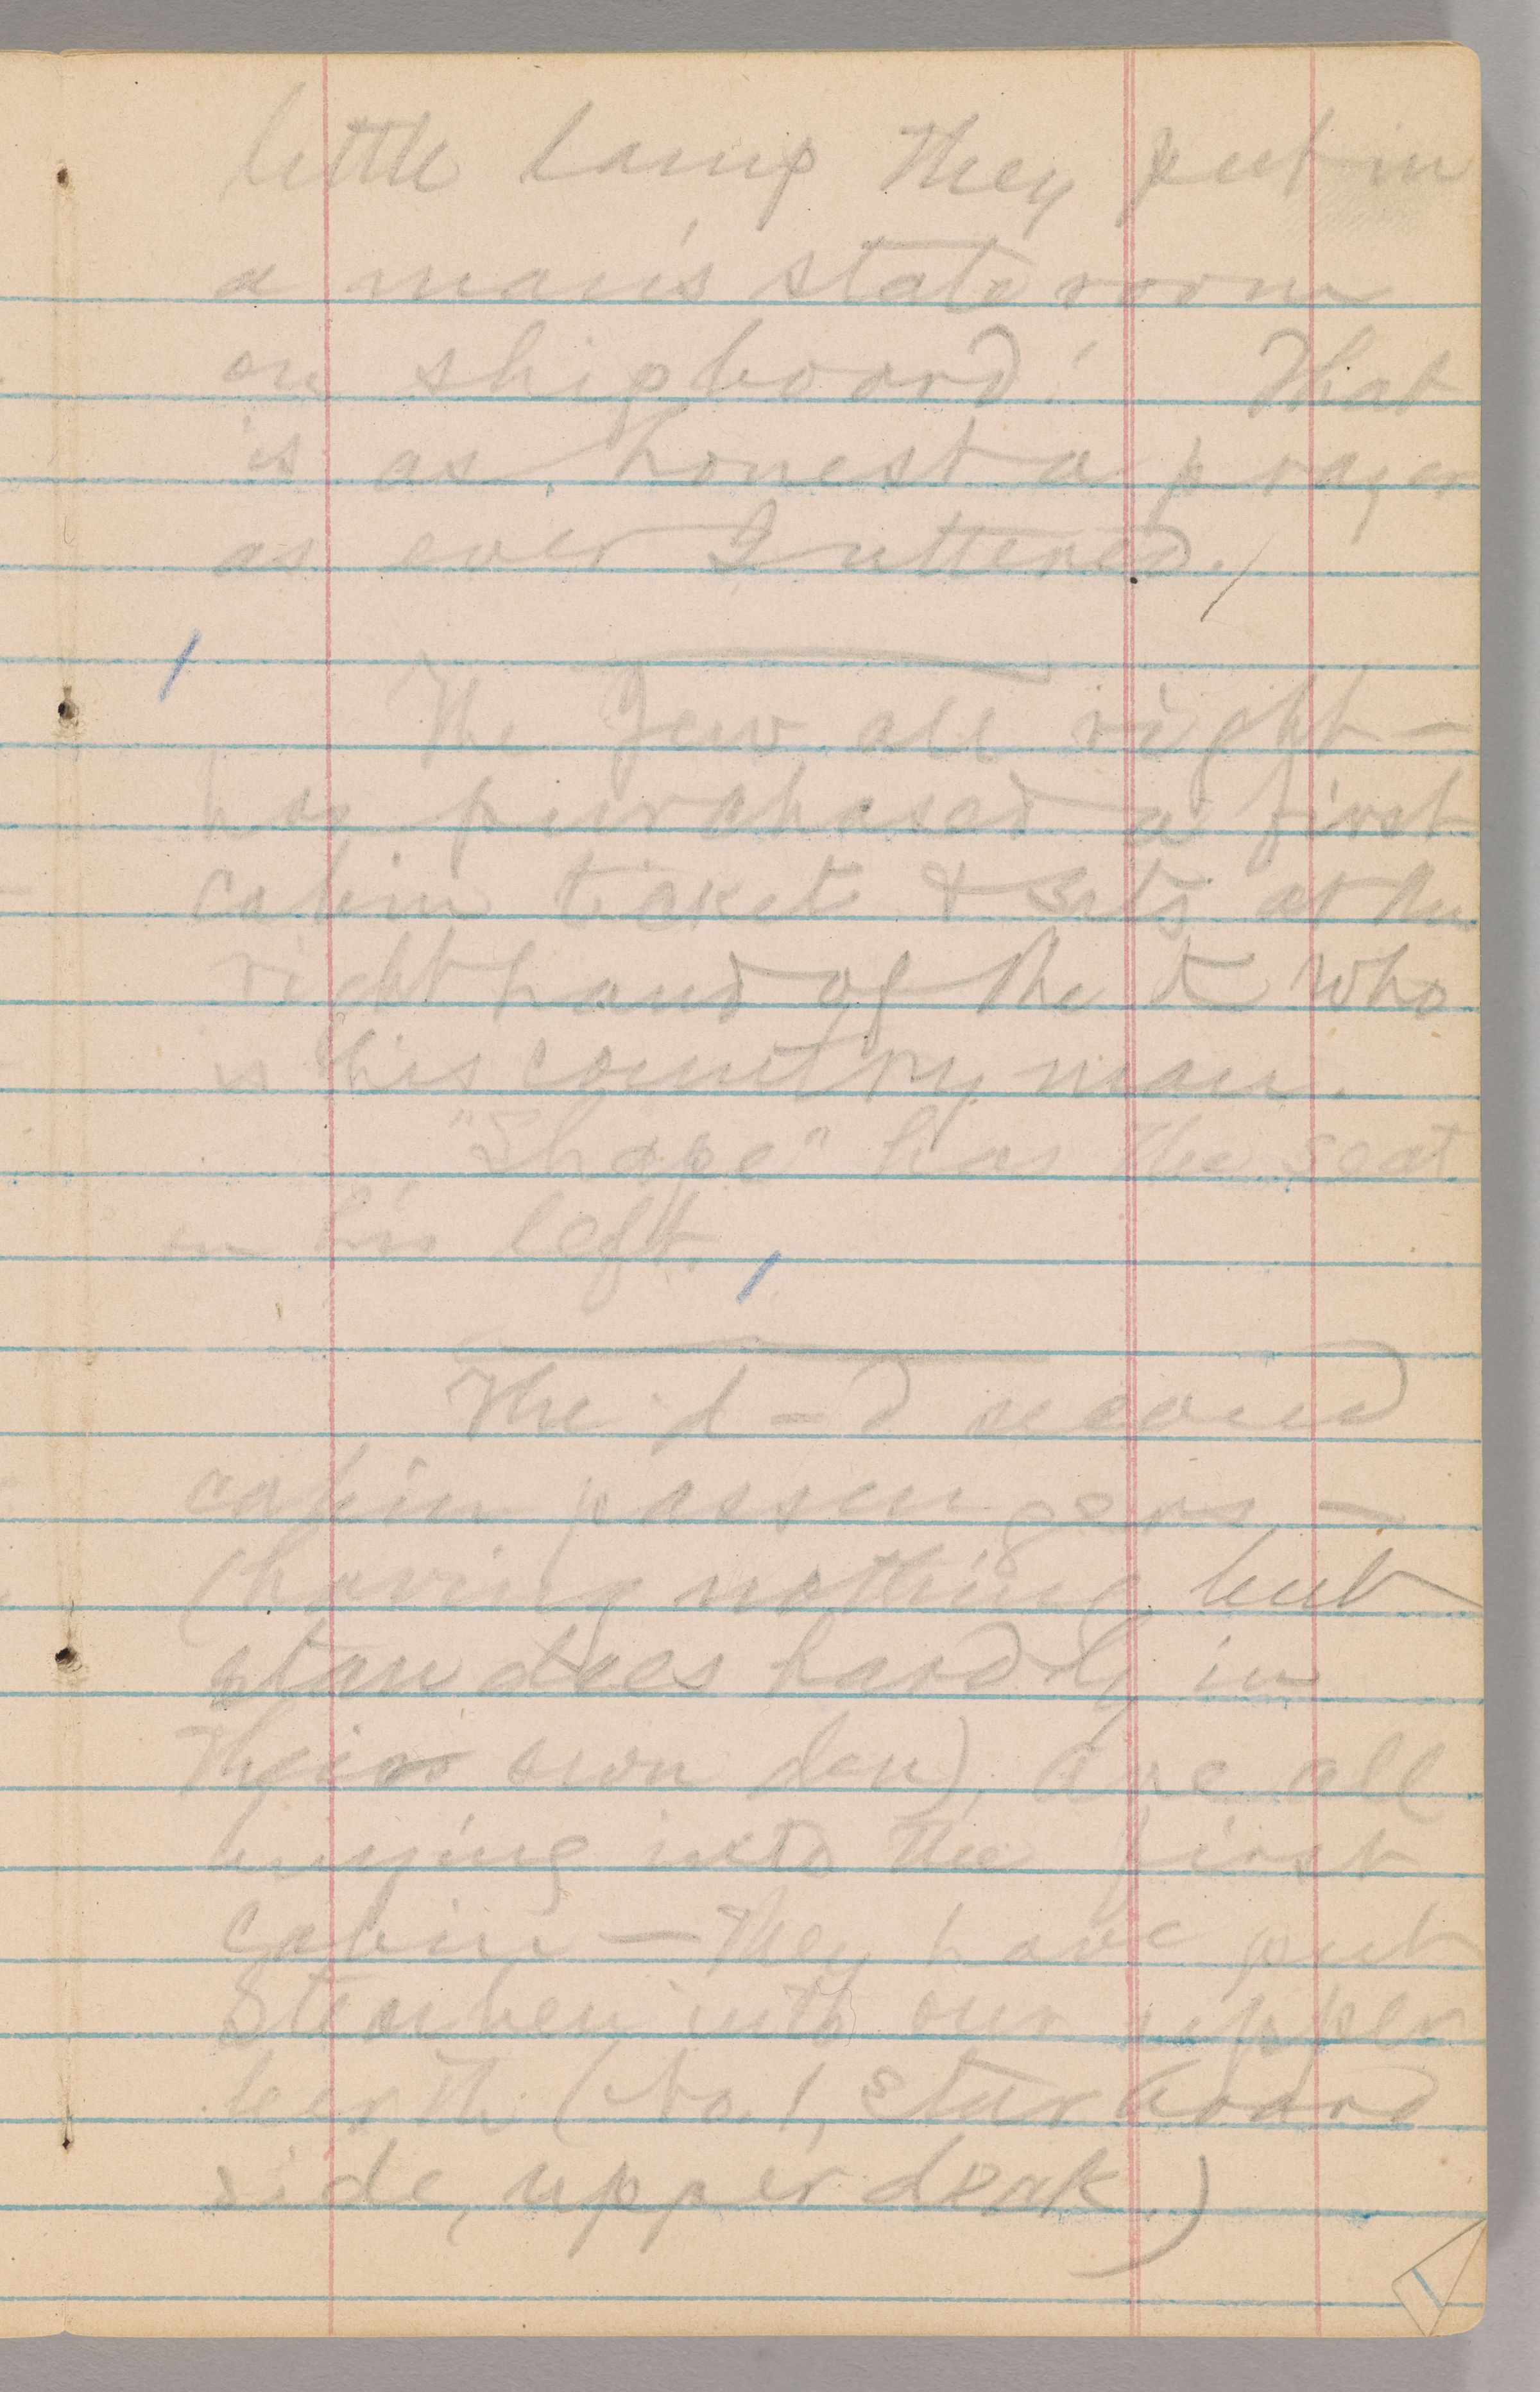 little lamp they put in
a man's state room
on shipboard! That
is as honest a prayer
as ever I uttered.
The Jew all right—
has purchased a first
cabin ticket & sits at the
right hand of the who
is his countryman.
"Shape" has the seat
on his left.
The d—d second
cabin passengers—
(having nothing but
standees hardly in
their own den), are all
buying into the first
cabin—They have put
into our upper
berth (No. 1, starboard
side, upper deck.)